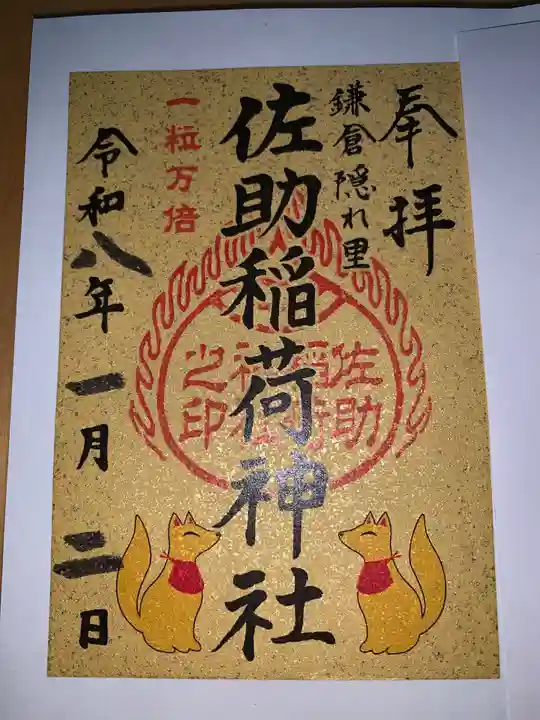 奉拝
鎌倉隠れ里
佐助稲荷神社
一粒万倍
佐助稲荷神社之印
令和八年一月二日